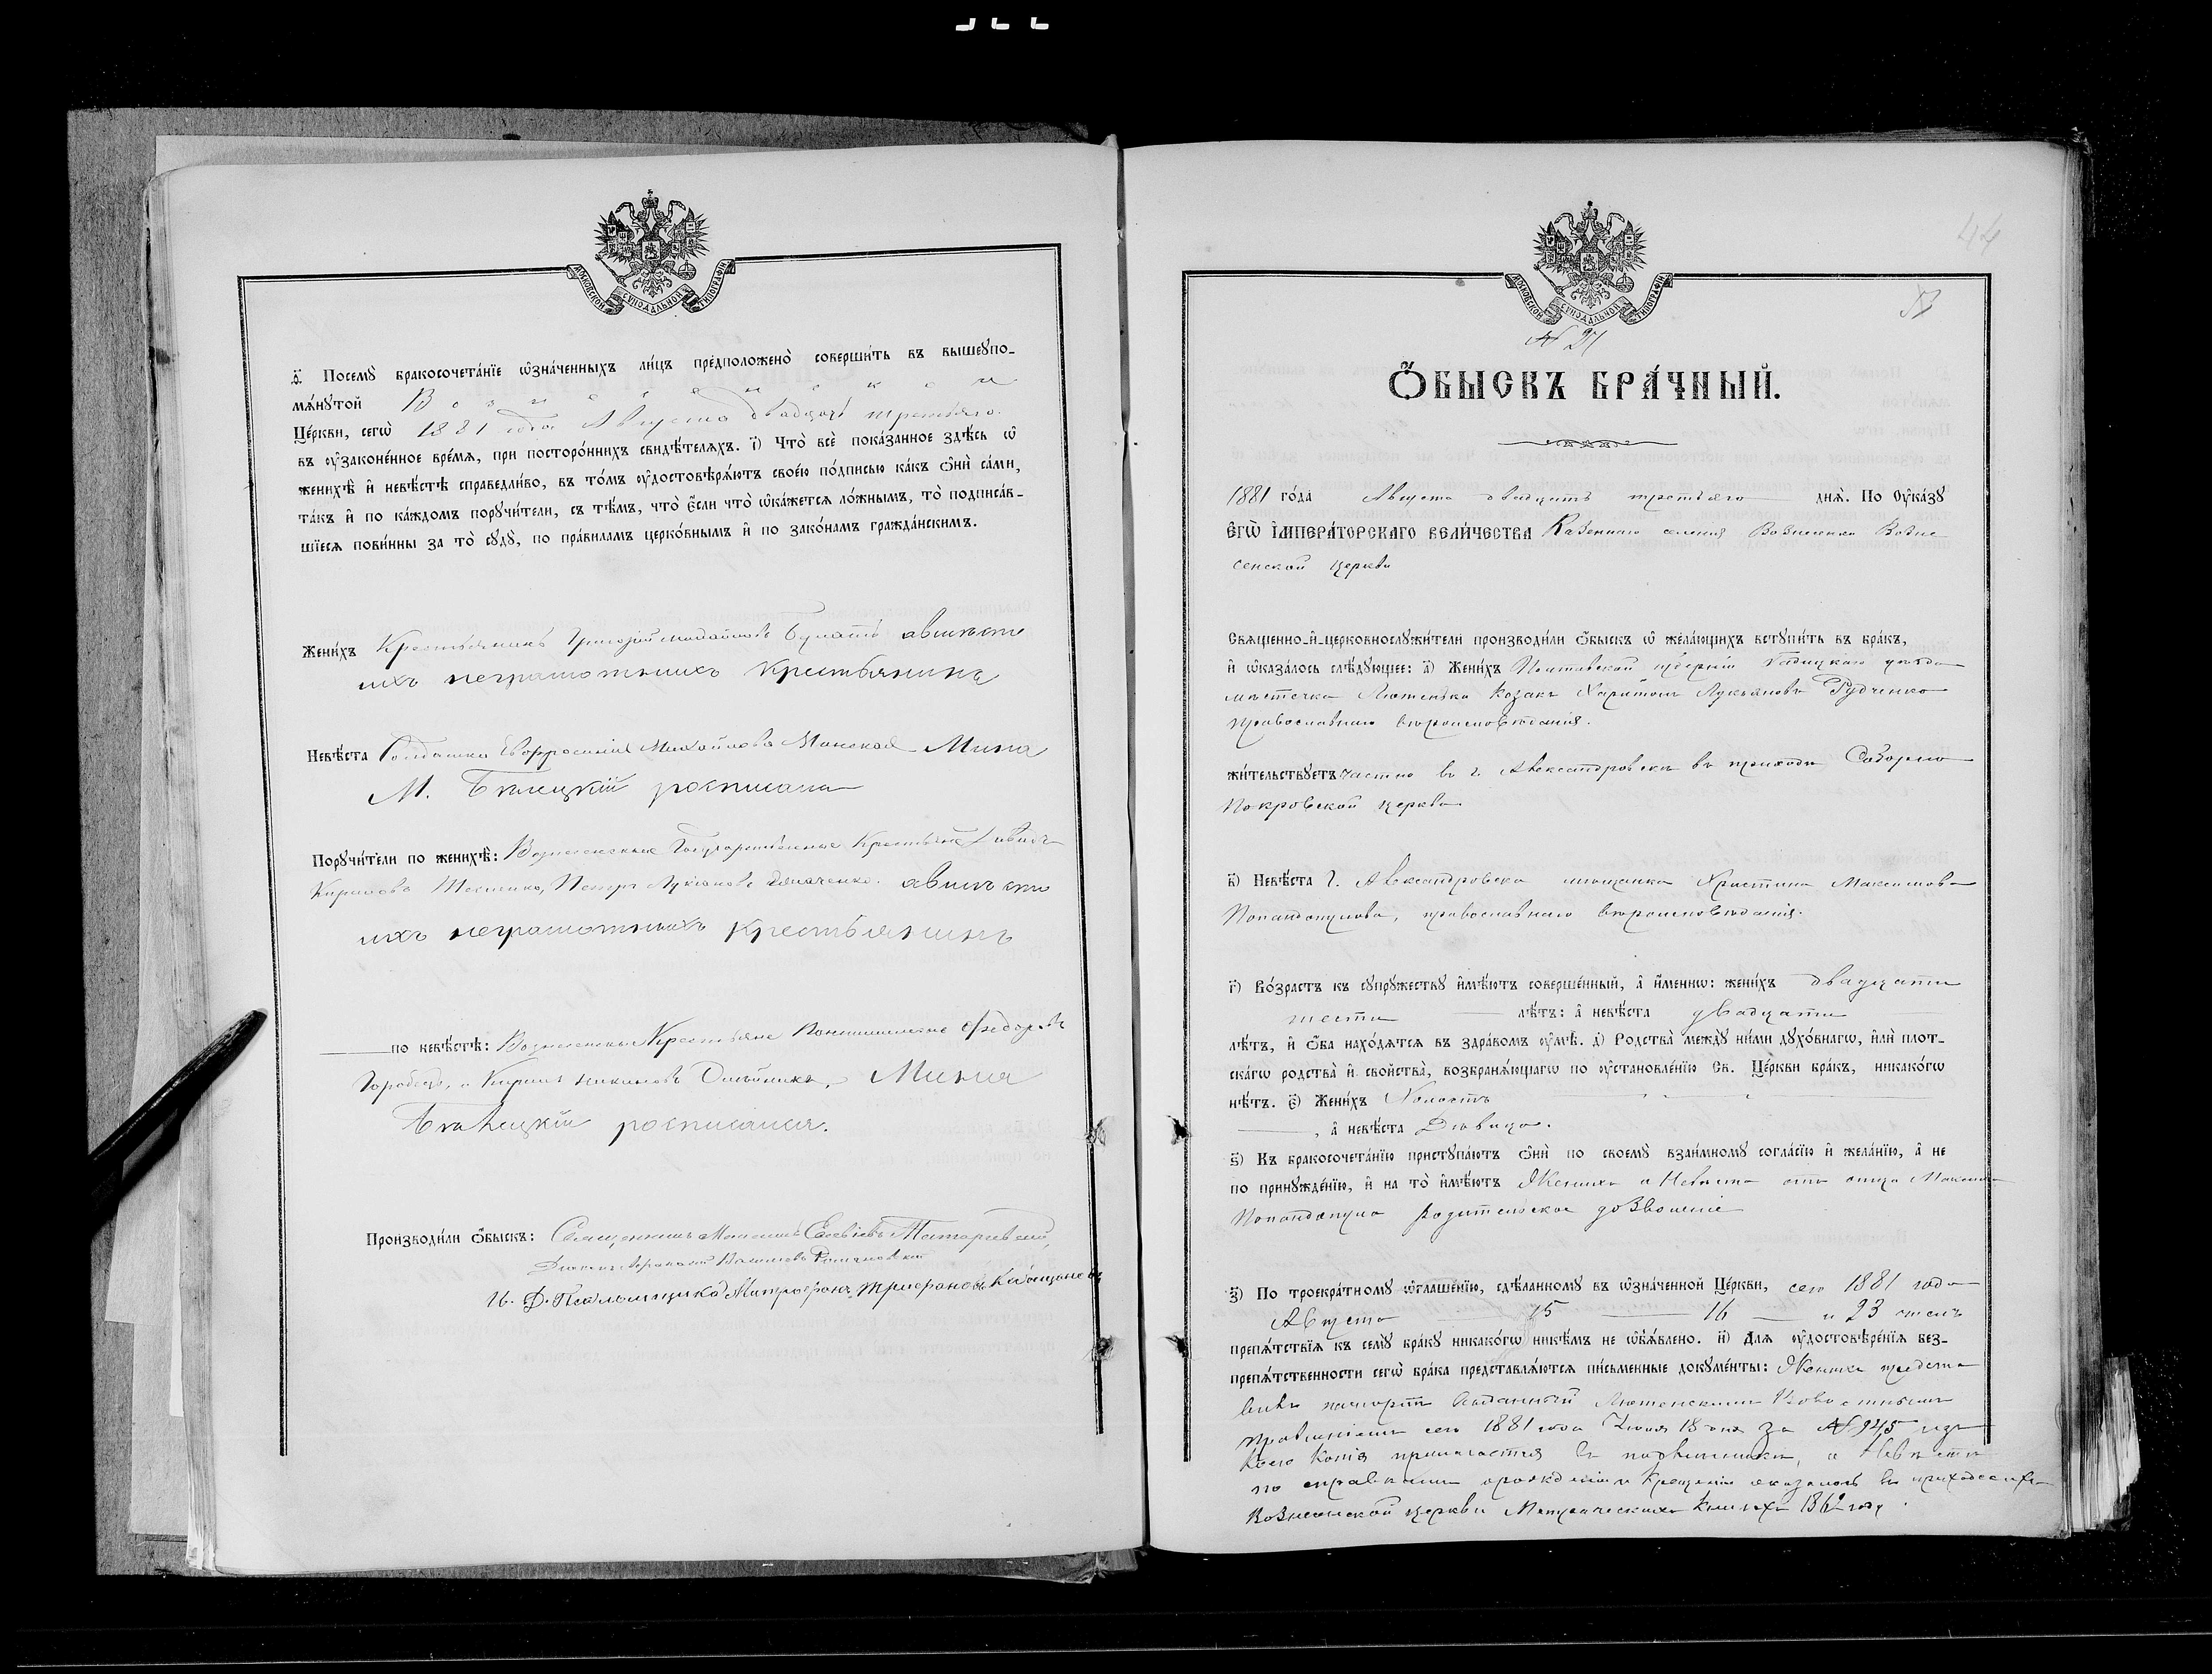 МОСКОВСКОЙ СѴНОДАЛЬНОЙ ТИПОГРАФІИ
ѳ҃) Посемꙋ̀ бракосочета́нїе ѡ҆зна́ченныхъ ли́цъ предположено̀ соверши́ть въ вышеꙋпо-
мѧ́нꙋтой Вознесенской
Це́ркви, сегѡ̀ 1881 года Августа двадцать третьяго
въ ᲂу҆законе́нное вре́мѧ, при посторо́ннихъ свидѣ́телѧхъ. і҃) Что̀ всѐ пока́занное здѣ́сь ѡ҆
женихѣ̀ и҆ невѣ́стѣ справедли́во, въ то́мъ ᲂу҆достовѣрѧ́ютъ свое́ю по́дписью ка́къ ѻ҆нѝ са́ми,
та́къ и҆ по ка́ждомъ порꙋчи́тели, съ тѣ́мъ, что̀ є҆́сли что̀ ѡ҆ка́жетсѧ ло́жнымъ, то̀ подписа́в-
шїесѧ пови́нны за то̀ сꙋдꙋ̀, по пра́виламъ церко́внымъ и҆ по зако́намъ гражда́нскимъ.
Жени́хъ Крестьянинъ Григорій Михайловъ авместо
ихъ неграмотныхъ крестьянинъ
Невѣ́ста Солдатка Евфросинія Михайлова Мина
М. Бѣлецкій росписался
Порꙋчи́тели по женихѣ̀: Вознесенские Государственные Крестьяне Давидъ
Кириловъ Петръ Лукіановъ авместо
ихъ неграмотныхъ крестьянинъ
по невѣ́стѣ: Вознесенские Крестьяне Федоровъ
Городецъ, и Кирилъ Олѣйникъ, Мина
Бѣлецкій росписался.
Производи́ли ѻ҆́быскъ: Священникъ Моисей Евсѣевъ
Діаконъ Романовскій
И. Д. Псаломщика Митрофанъ Трифановъ
44
МОСКОВСКОЙ СѴНОДАЛЬНОЙ ТИПОГРАФІИ
№ 21
Ѻ҆́БЫСКЪ БРА́ЧНЫЙ.
1881 го́да Августа двадцать третьяго днѧ̀. По Оу҆ка́зꙋ
Є҆ГѠ̀ І҆МПЕРА́ТОРСКАГО ВЕЛИ́ЧЕСТВА Казеннаго селенія Вознесенки Возне
сенской церкви
Свѧще́нно-и҆-церковнослꙋжи́тели производи́ли ѻ҆́быскъ ѡ҆ жела́ющихъ встꙋпи́ть въ бра́къ,
и҆ ѡ҆каза́лось слѣ́дꙋющее: а҃) Жени́хъ Полтавской губерніи Гадицкаго уѣзда
мѣстечка Лютенька козакъ Харитонъ Лукьяновъ Рудченко
православнаго вѣроисповѣданія.
жи́тельствꙋетъ частно въ г. Александровскѣ въ приходѣ Соборно
Покровской церкви
в҃) Невѣ́ста г. Александровска мѣщанка Христина Максимова
Попандопулова, православнаго вѣроисповѣданія.
г҃) Во́зрастъ къ сꙋпрꙋ́жествꙋ и҆мѣ́ютъ соверше́нный, а҆ и҆́меннѡ: жени́хъ двадцати
шести лѣ́тъ: а҆ невѣ́ста двадцати
лѣ́тъ, и҆ ѻ҆́ба нахо́дѧтсѧ въ здра́вомъ ᲂу҆мѣ̀. д҃) Родства̀ междꙋ̀ ни́ми дꙋхо́внагѡ, и҆лѝ плот-
ска́гѡ родства̀ и҆ сво́йства̀, возбранѧ́ющагѡ по ᲂу҆становле́нїю Св. Це́ркви бра́къ, никако́гѡ
нѣ́тъ. є҃) Жени́хъ Холостъ
, а҆ невѣ́ста Дѣвица.
ѕ҃) Къ бракосочета́нїю пристꙋпа́ютъ ѻ҆нѝ по своемꙋ̀ взаи́мномꙋ согла́сїю и҆ жела́нїю, а҆ не
по принꙋжде́нїю, и҆ на то̀ и҆мѣ́ютъ Женихъ и Невѣста отъ отца Максима
Попандопула родительское дозволеніе
з҃) По троекра́тномꙋ ѡ҆глаше́нїю, сдѣ́ланномꙋ въ ѡ҆зна́ченной Це́ркви, сего 1881 года
Августа 15 16 и 23 числъ
препѧ́тствїѧ къ семꙋ̀ бра́кꙋ никако́гѡ никѣ́мъ не ѡ҆б̾ѧ́влено. и҃) Длѧ ᲂу҆достовѣре́нїѧ без-
препѧ́тственности сегѡ̀ бра́ка представлѧ́ютсѧ пи́сьменные докꙋме́нты: Женихъ предста
вилъ паспортъ выданный Лютенскимъ Волостнымъ
правленіемъ сего 1881 года Іюля 18 дня за № 945 изъ
коего копія прилагается къ подлиннику, а Невѣста
по справкамъ о рожденіи и крещеніи оказалось въ приходских
Вознесенской церкви Метрическихъ книгахъ 1862 году.